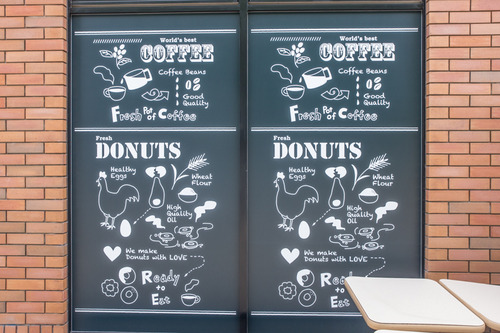 World's best
COFFEE
Coffee Beans
Good
Quality
Fresh Pot of Coffee
Fresh
DONUTS
Healthy
Eggs
Wheat
Flour
High
Quality
Oil
We make
Donuts with LOVE
Ready
to
Eat
World's best
COFFEE
Coffee Beans
Good
Quality
Fresh Pot of Coffee
Fresh
DONUTS
Healthy
Eggs
Wheat
Flour
High
Quality
Oil
We make
Donuts with LOVE
Ready
to
Eat